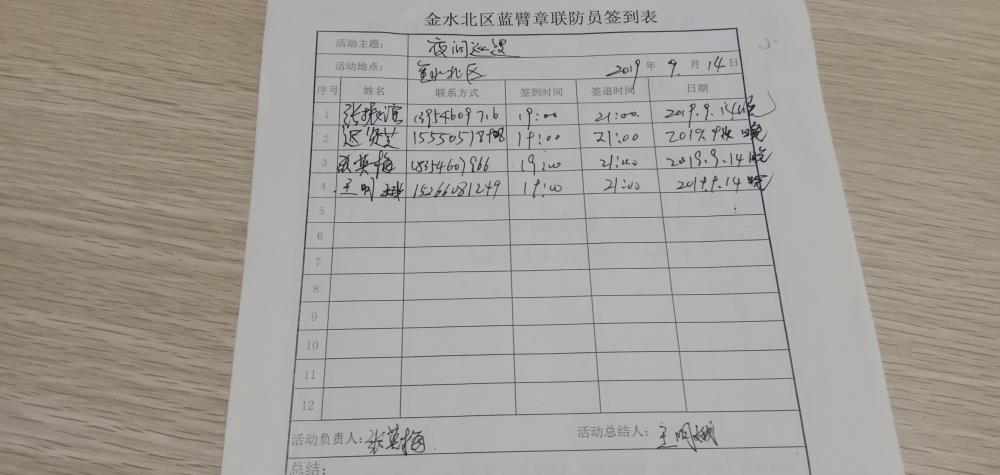 金水北区蓝臂章联防员签到表
活动主题： 夜间巡逻
活动地点： 金水北区 2019 年 9. 月 14 日
序号 姓名 联系方式 签到时间 签退时间 日期
1 19:00 21:00. 2019.9.14晚
2 19:00 21:00 晚
3 张英梅 19:00 21:00 2019.9.14晚
4 王明娥 15266081249 19:00 21:00 2019.9.14晚
5
6
7
8
9
10
11
12
活动负责人：张英梅 活动总结人：王明娥
总结：